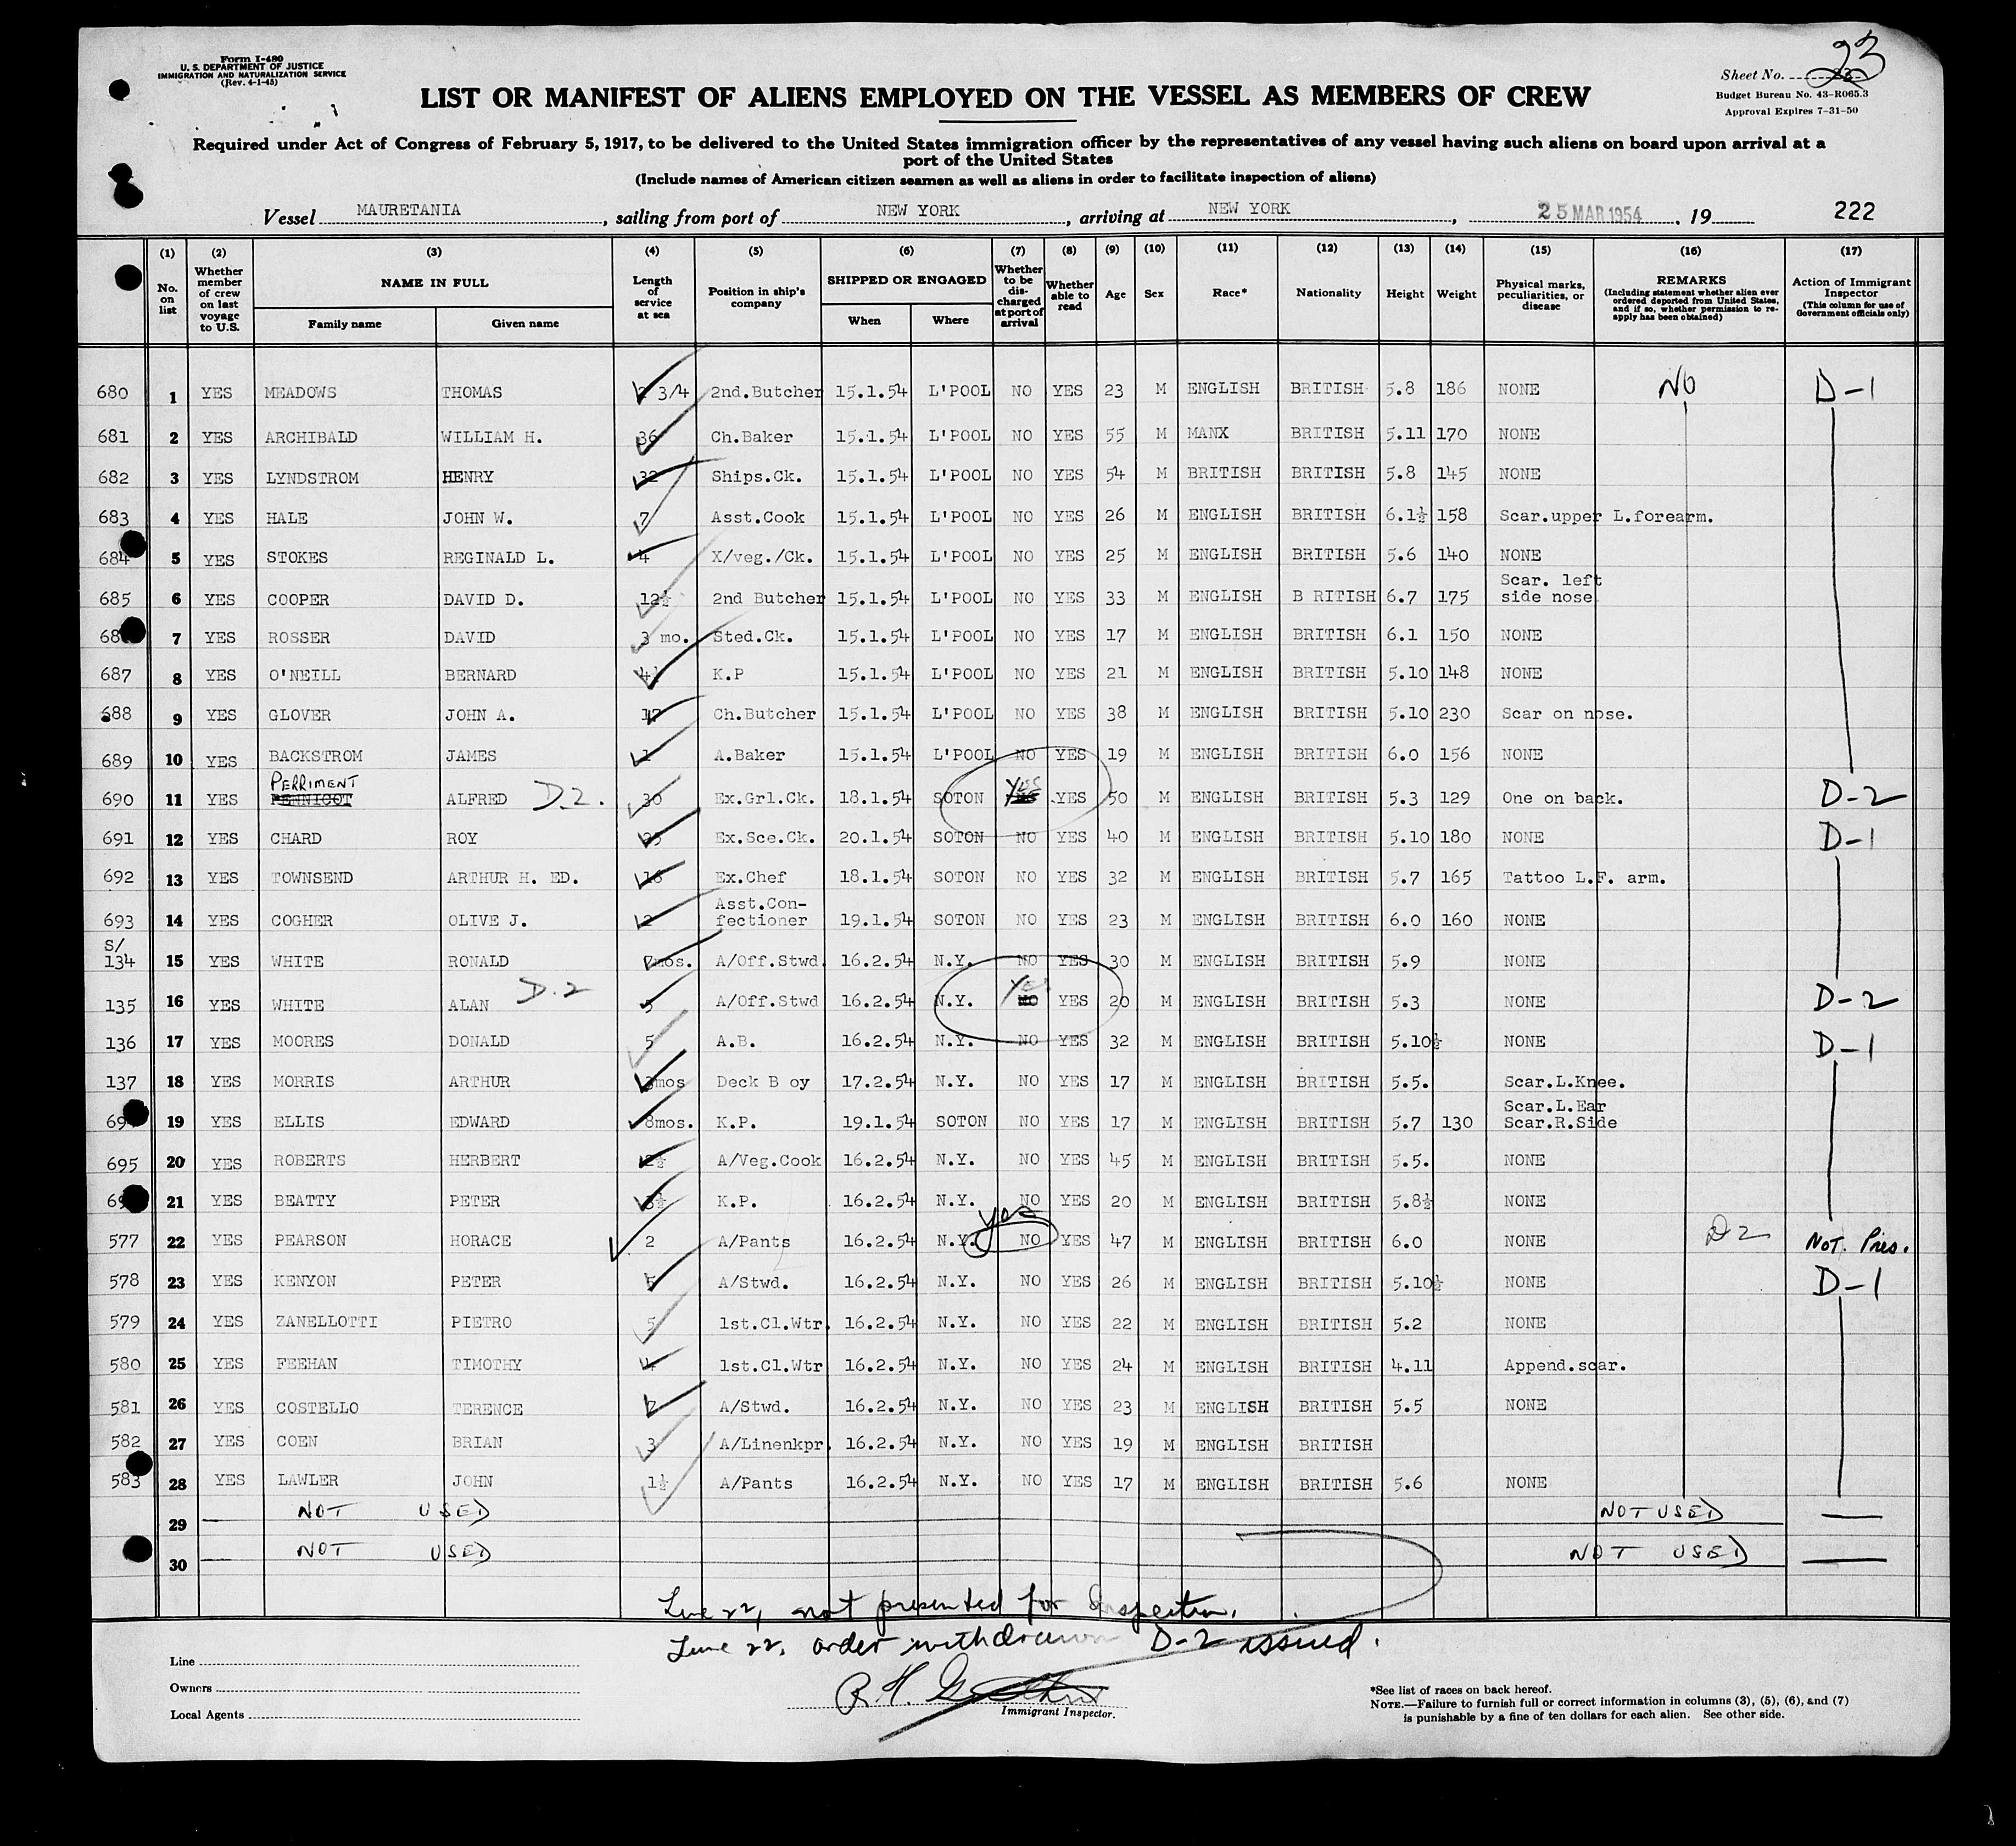 Form I-480
U. S. DEPARTMENT OF JUSTICE
IMMIGRATION AND NATURALIZATION SERVICE
(Rev. 4-1-45)
23
Sheet No.
Budget Bureau No. 43-R065.3
Approval Expires 7-31-50
LIST OR MANIFEST OF ALIENS EMPLOYED ON THE VESSEL AS MEMBERS OF CREW
Required under Act of Congress of February 5, 1917, to be delivered to the United States immigration officer by the representatives of any vessel having such aliens on board upon arrival at a
port of the United States
(Include names of American citizen seamen as well as aliens in order to facilitate inspection of aliens)
Vessel MAURETANIA, sailing from port of NEW YORK, arriving at NEW YORK, 25 MAR 1954, 19 222
(1) (2) (3) (4) (5) (6) (7) (8) (9) (10) (11) (12) (13) (14) (15) (16) (17)
No. on list
Whether member of crew on last voyage to U.S.
NAME IN FULL
Family name
Given name
Length of service at sea
Position in ship's company
SHIPPED OR ENGAGED
When
Where
Whether to be discharged at port of arrival
Whether able to read
Age
Sex
Race*
Nationality
Height
Weight
Physical marks, peculiarities, or disease
REMARKS
(Including statement whether alien ever ordered deported from United States, and if so, whether permission to re-apply has been obtained)
Action of Immigrant Inspector
(This column for use of Government officials only)
680 1 YES MEADOWS THOMAS 3/4 2nd.Butcher 15.1.54 L'POOL NO YES 23 M ENGLISH BRITISH 5.8 186 NONE NO D-1
681 2 YES ARCHIBALD WILLIAM H. 36 Ch.Baker 15.1.54 L'POOL NO YES 55 M MANX BRITISH 5.11 170 NONE
682 3 YES LYNDSTROM HENRY 32 Ships.Ck. 15.1.54 L'POOL NO YES 54 M BRITISH BRITISH 5.8 145 NONE
683 4 YES HALE JOHN W. 7 Asst.Cook 15.1.54 L'POOL NO YES 26 M ENGLISH BRITISH 6.1½ 158 Scar.upper L.forearm.
684 5 YES STOKES REGINALD L. 4 X/veg./Ck. 15.1.54 L'POOL NO YES 25 M ENGLISH BRITISH 5.6 140 NONE
685 6 YES COOPER DAVID D. 12½ 2nd Butcher 15.1.54 L'POOL NO YES 33 M ENGLISH B RITISH 6.7 175 Scar. left side nose
68 7 YES ROSSER DAVID 3 mo. Sted.Ck. 15.1.54 L'POOL NO YES 17 M ENGLISH BRITISH 6.1 150 NONE
687 8 YES O'NEILL BERNARD K.P 15.1.54 L'POOL NO YES 21 M ENGLISH BRITISH 5.10 148 NONE
688 9 YES GLOVER JOHN A. 17 Ch.Butcher 15.1.54 L'POOL NO YES 38 M ENGLISH BRITISH 5.10 230 Scar on nose.
689 10 YES BACKSTROM JAMES 1 A.Baker 15.1.54 L'POOL NO YES 19 M ENGLISH BRITISH 6.0 156 NONE
PERRIMENT
690 11 YES PENNICOT ALFRED D.2. 30 Ex.Grl.Ck. 18.1.54 SOTON YES YES 50 M ENGLISH BRITISH 5.3 129 One on back. D-2
691 12 YES CHARD ROY Ex.Sce.Ck. 20.1.54 SOTON NO YES 40 M ENGLISH BRITISH 5.10 180 NONE D-1
692 13 YES TOWNSEND ARTHUR H. ED. 16 Ex.Chef 18.1.54 SOTON NO YES 32 M ENGLISH BRITISH 5.7 165 Tattoo L.F. arm.
693 14 YES COGHER OLIVE J. 2 Asst.Con-fectioner 19.1.54 SOTON NO YES 23 M ENGLISH BRITISH 6.0 160 NONE
S/
134 15 YES WHITE RONALD 7mos. A/Off.Stwd. 16.2.54 N.Y. NO YES 30 M ENGLISH BRITISH 5.9 NONE
135 16 YES WHITE ALAN D.2 5 A/Off.Stwd 16.2.54 N.Y. YES NO YES 20 M ENGLISH BRITISH 5.3 NONE D-2
136 17 YES MOORES DONALD 5 A.B. 16.2.54 N.Y. NO YES 32 M ENGLISH BRITISH 5.10½ NONE D-1
137 18 YES MORRIS ARTHUR mos Deck B oy 17.2.54 N.Y. NO YES 17 M ENGLISH BRITISH 5.5. Scar.L.Knee.
69 19 YES ELLIS EDWARD 8mos. K.P. 19.1.54 SOTON NO YES 17 M ENGLISH BRITISH 5.7 130 Scar.L.Ear Scar.R.Side
695 20 YES ROBERTS HERBERT 2½ A/Veg.Cook 16.2.54 N.Y. NO YES 45 M ENGLISH BRITISH 5.5. NONE
69 21 YES BEATTY PETER K.P. 16.2.54 N.Y. NO YES 20 M ENGLISH BRITISH 5.8½ NONE
577 22 YES PEARSON HORACE 2 A/Pants 16.2.54 N.Y. yes NO YES 47 M ENGLISH BRITISH 6.0 NONE D2 NOT. Pres.
578 23 YES KENYON PETER 6 A/Stwd. 16.2.54 N.Y. NO YES 26 M ENGLISH BRITISH 5.10½ NONE D-1
579 24 YES ZANELLOTTI PIETRO 5 1st.Cl.Wtr. 16.2.54 N.Y. NO YES 22 M ENGLISH BRITISH 5.2 NONE
580 25 YES FEEHAN TIMOTHY 4 1st.Cl.Wtr 16.2.54 N.Y. NO YES 24 M ENGLISH BRITISH 4.11 Append.scar.
581 26 YES COSTELLO TERENCE A/Stwd. 16.2.54 N.Y. NO YES 23 M ENGLISH BRITISH 5.5 NONE
582 27 YES COEN BRIAN 3 A/Linenkpr. 16.2.54 N.Y. NO YES 19 M ENGLISH BRITISH
583 28 YES LAWLER JOHN 1½ A/Pants 16.2.54 N.Y. NO YES 17 M ENGLISH BRITISH 5.6 NONE
29 — NOT USED NOT USED —
30 — NOT USED NOT USED —
Line 22, not presented for Inspection.
Line 22, order withdrawn D-2 issued.
Line
Owners
Local Agents
R.H.
Immigrant Inspector.
*See list of races on back hereof.
NOTE.—Failure to furnish full or correct information in columns (3), (5), (6), and (7)
is punishable by a fine of ten dollars for each alien. See other side.